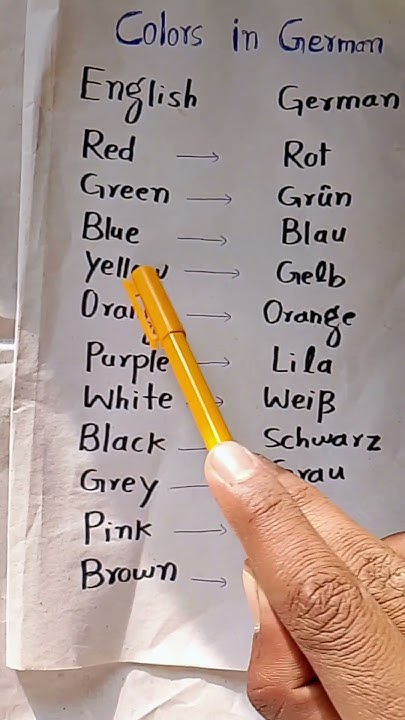 Colors in German
English German
Red → Rot
Green → Grün
Blue → Blau
Yellow → Gelb
Orange → Orange
Purple → Lila
White → Weiß
Black → Schwarz
Grey → Grau
Pink →
Brown →